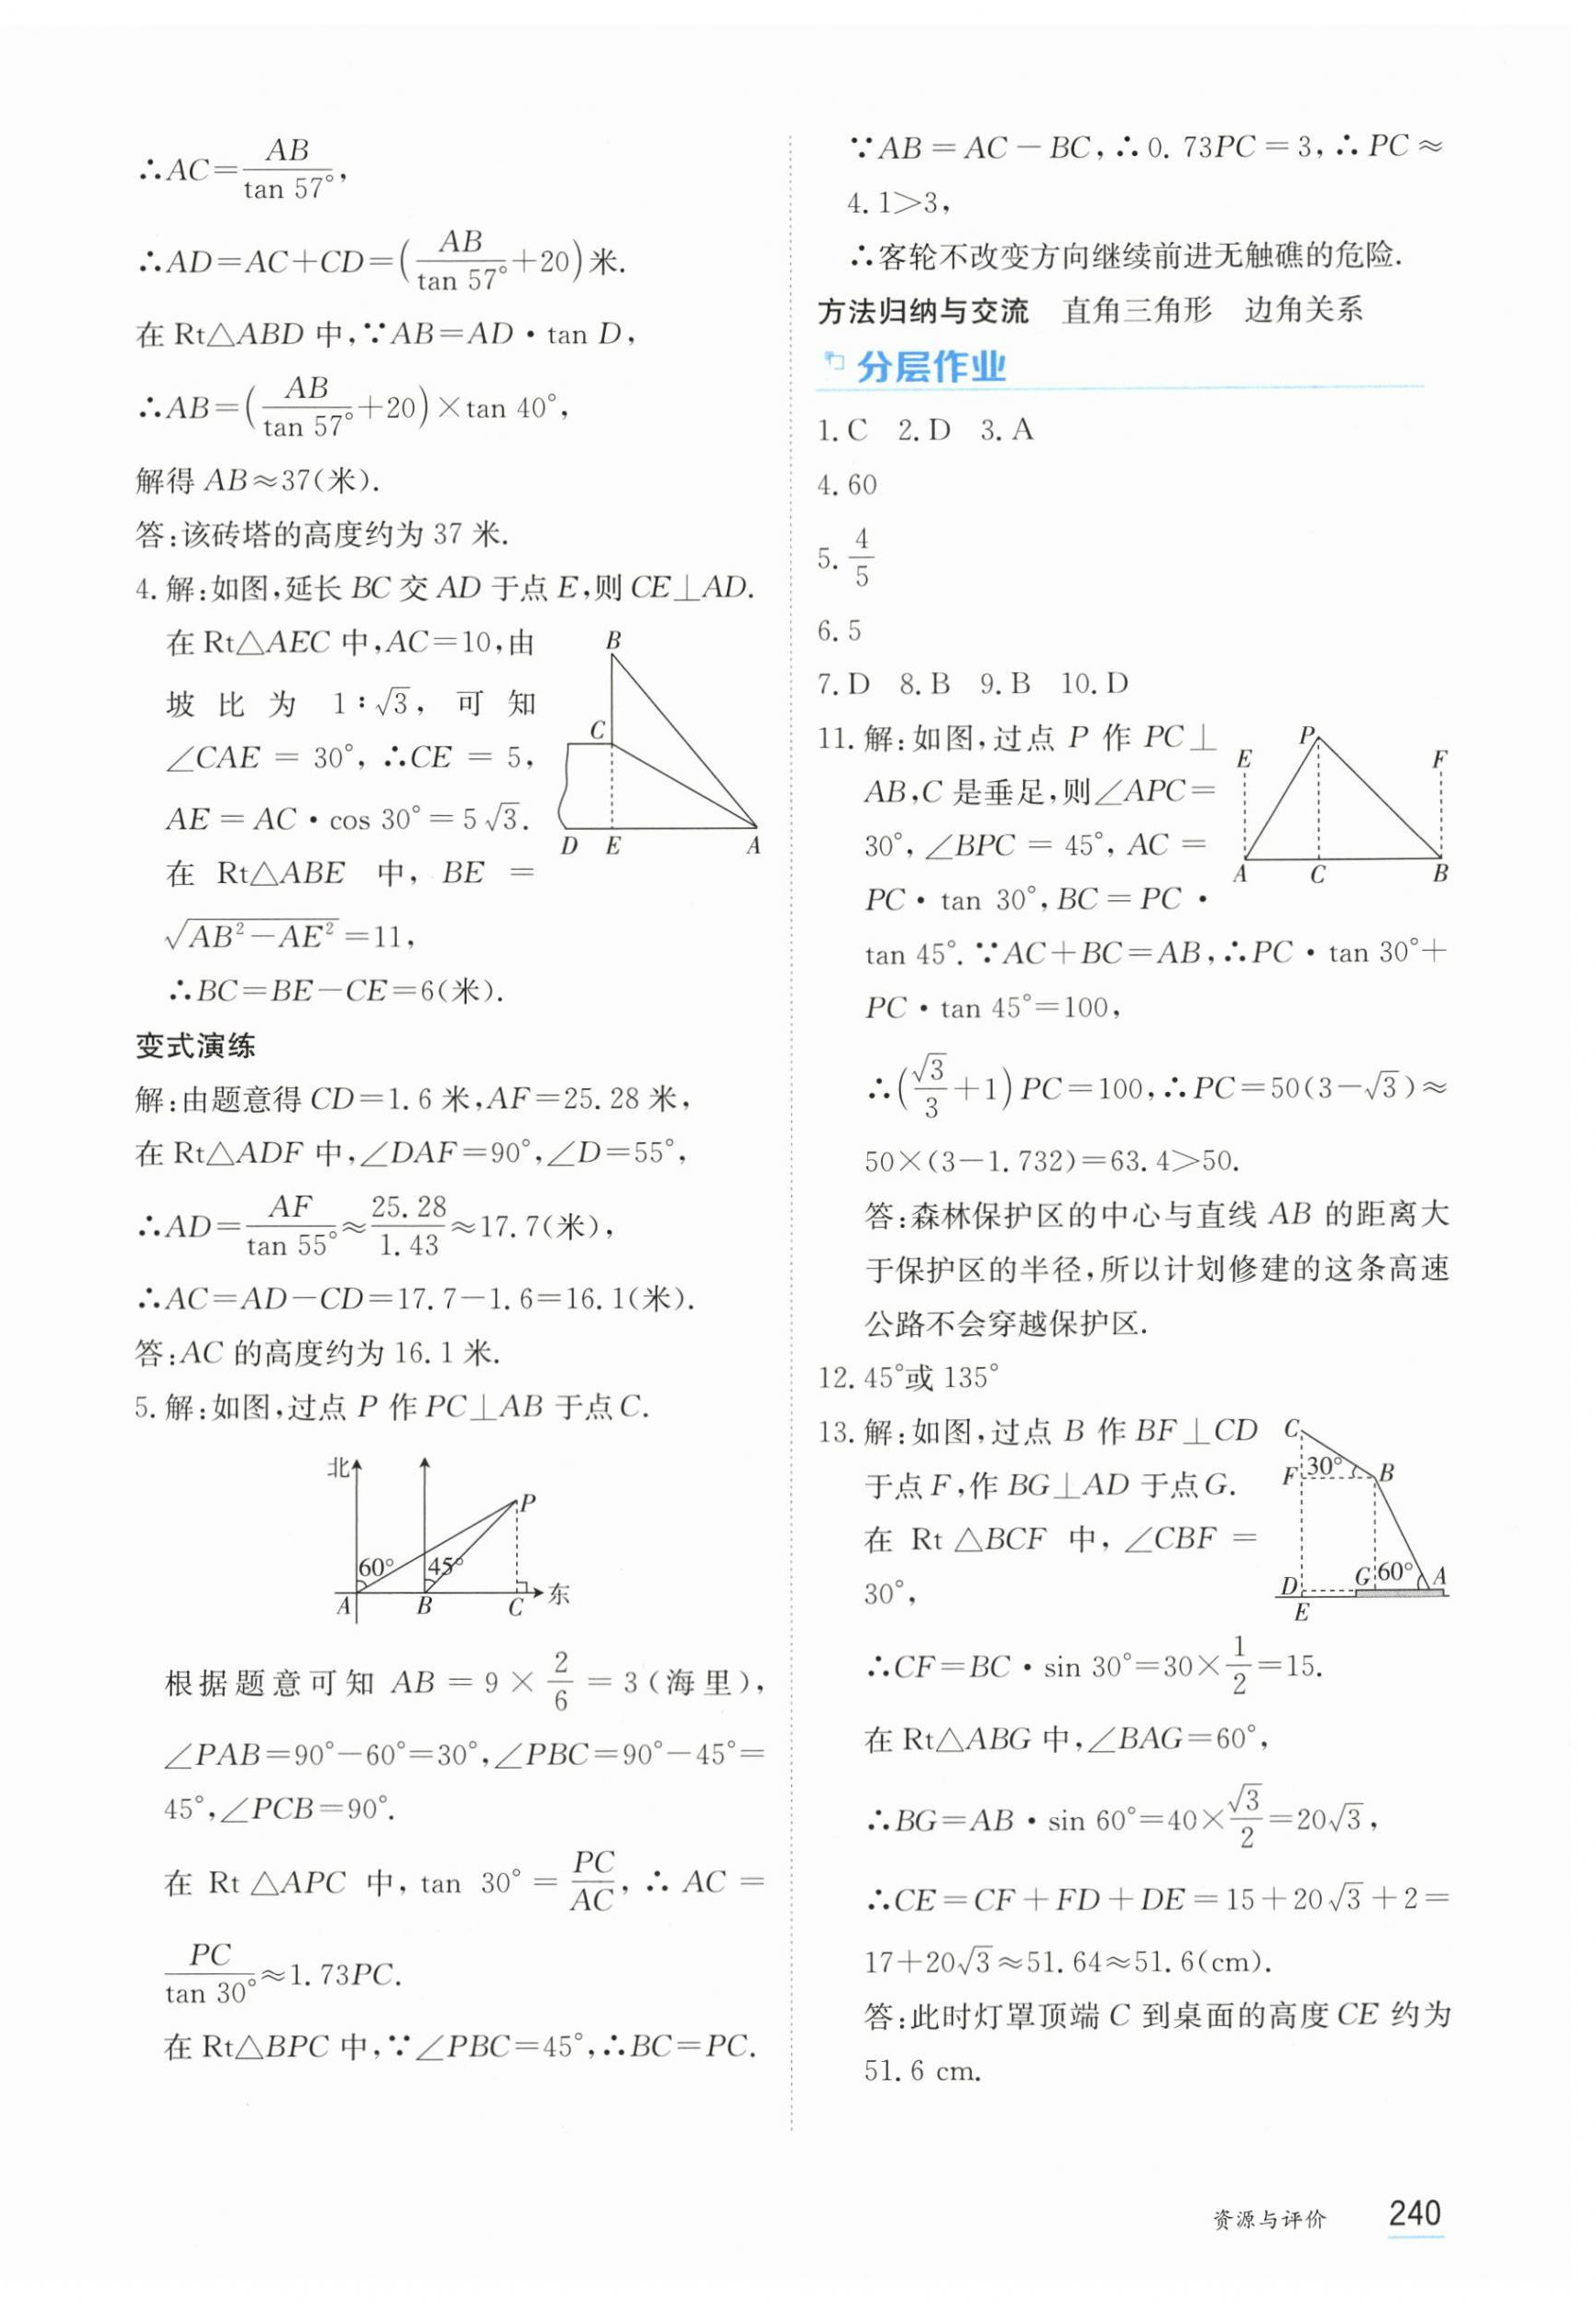 ∴AC=AB/tan 57°,
∴AD=AC+CD=(AB/tan 57°+20)米.
在 Rt△ABD 中,∵AB=AD·tan D,
∴AB=(AB/tan 57°+20)×tan 40°,
解得 AB≈37(米).
答:该砖塔的高度约为 37 米.
4. 解:如图,延长 BC 交 AD 于点 E,则 CE⊥AD.
在 Rt△AEC 中,AC=10,由
坡比为 1∶√3, 可知
∠CAE = 30°, ∴CE = 5,
AE = AC·cos 30°=5√3.
在 Rt△ABE 中, BE =
√(AB²-AE²)=11,
∴BC=BE-CE=6(米).
B
C
D E A
变式演练
解:由题意得 CD=1.6 米,AF=25.28 米,
在 Rt△ADF 中,∠DAF=90°,∠D=55°,
∴AD=AF/tan 55°≈25.28/1.43≈17.7(米),
∴AC=AD-CD=17.7-1.6=16.1(米).
答:AC 的高度约为 16.1 米.
5. 解:如图,过点 P 作 PC⊥AB 于点 C.
北
P
60° 45°
东
A B C
根据题意可知 AB = 9 × 2/6 = 3(海里),
∠PAB=90°-60°=30°,∠PBC=90°-45°=
45°,∠PCB=90°.
在 Rt△APC 中, tan 30° = PC/AC, ∴ AC =
PC/tan 30°≈1.73PC.
在 Rt△BPC 中,∵∠PBC=45°,∴BC=PC.
∵AB = AC - BC, ∴0.73PC = 3, ∴PC ≈
4.1>3,
∴客轮不改变方向继续前进无触礁的危险.
方法归纳与交流 直角三角形 边角关系
分层作业
1. C 2. D 3. A
4. 60
5. 4/5
6. 5
7. D 8. B 9. B 10. D
11. 解:如图,过点 P 作 PC⊥
AB,C 是垂足,则∠APC=
30°, ∠BPC = 45°, AC =
PC·tan 30°, BC = PC·
tan 45°. ∵AC+BC=AB,∴PC·tan 30°+
PC·tan 45°=100,
P
E F
A C B
∴(√3/3+1)PC=100,∴PC=50(3-√3)≈
50×(3-1.732)=63.4>50.
答:森林保护区的中心与直线 AB 的距离大
于保护区的半径,所以计划修建的这条高速
公路不会穿越保护区.
12. 45°或 135°
13. 解:如图,过点 B 作 BF⊥CD
于点 F,作 BG⊥AD 于点 G.
在 Rt△BCF 中, ∠CBF =
30°,
C
F 30° B
D G 60° A
E
∴CF=BC·sin 30°=30×1/2=15.
在 Rt△ABG 中,∠BAG=60°,
∴BG=AB·sin 60°=40×√3/2=20√3,
∴CE=CF+FD+DE=15+20√3+2=
17+20√3≈51.64≈51.6(cm).
答:此时灯罩顶端 C 到桌面的高度 CE 约为
51.6 cm.
资源与评价 240